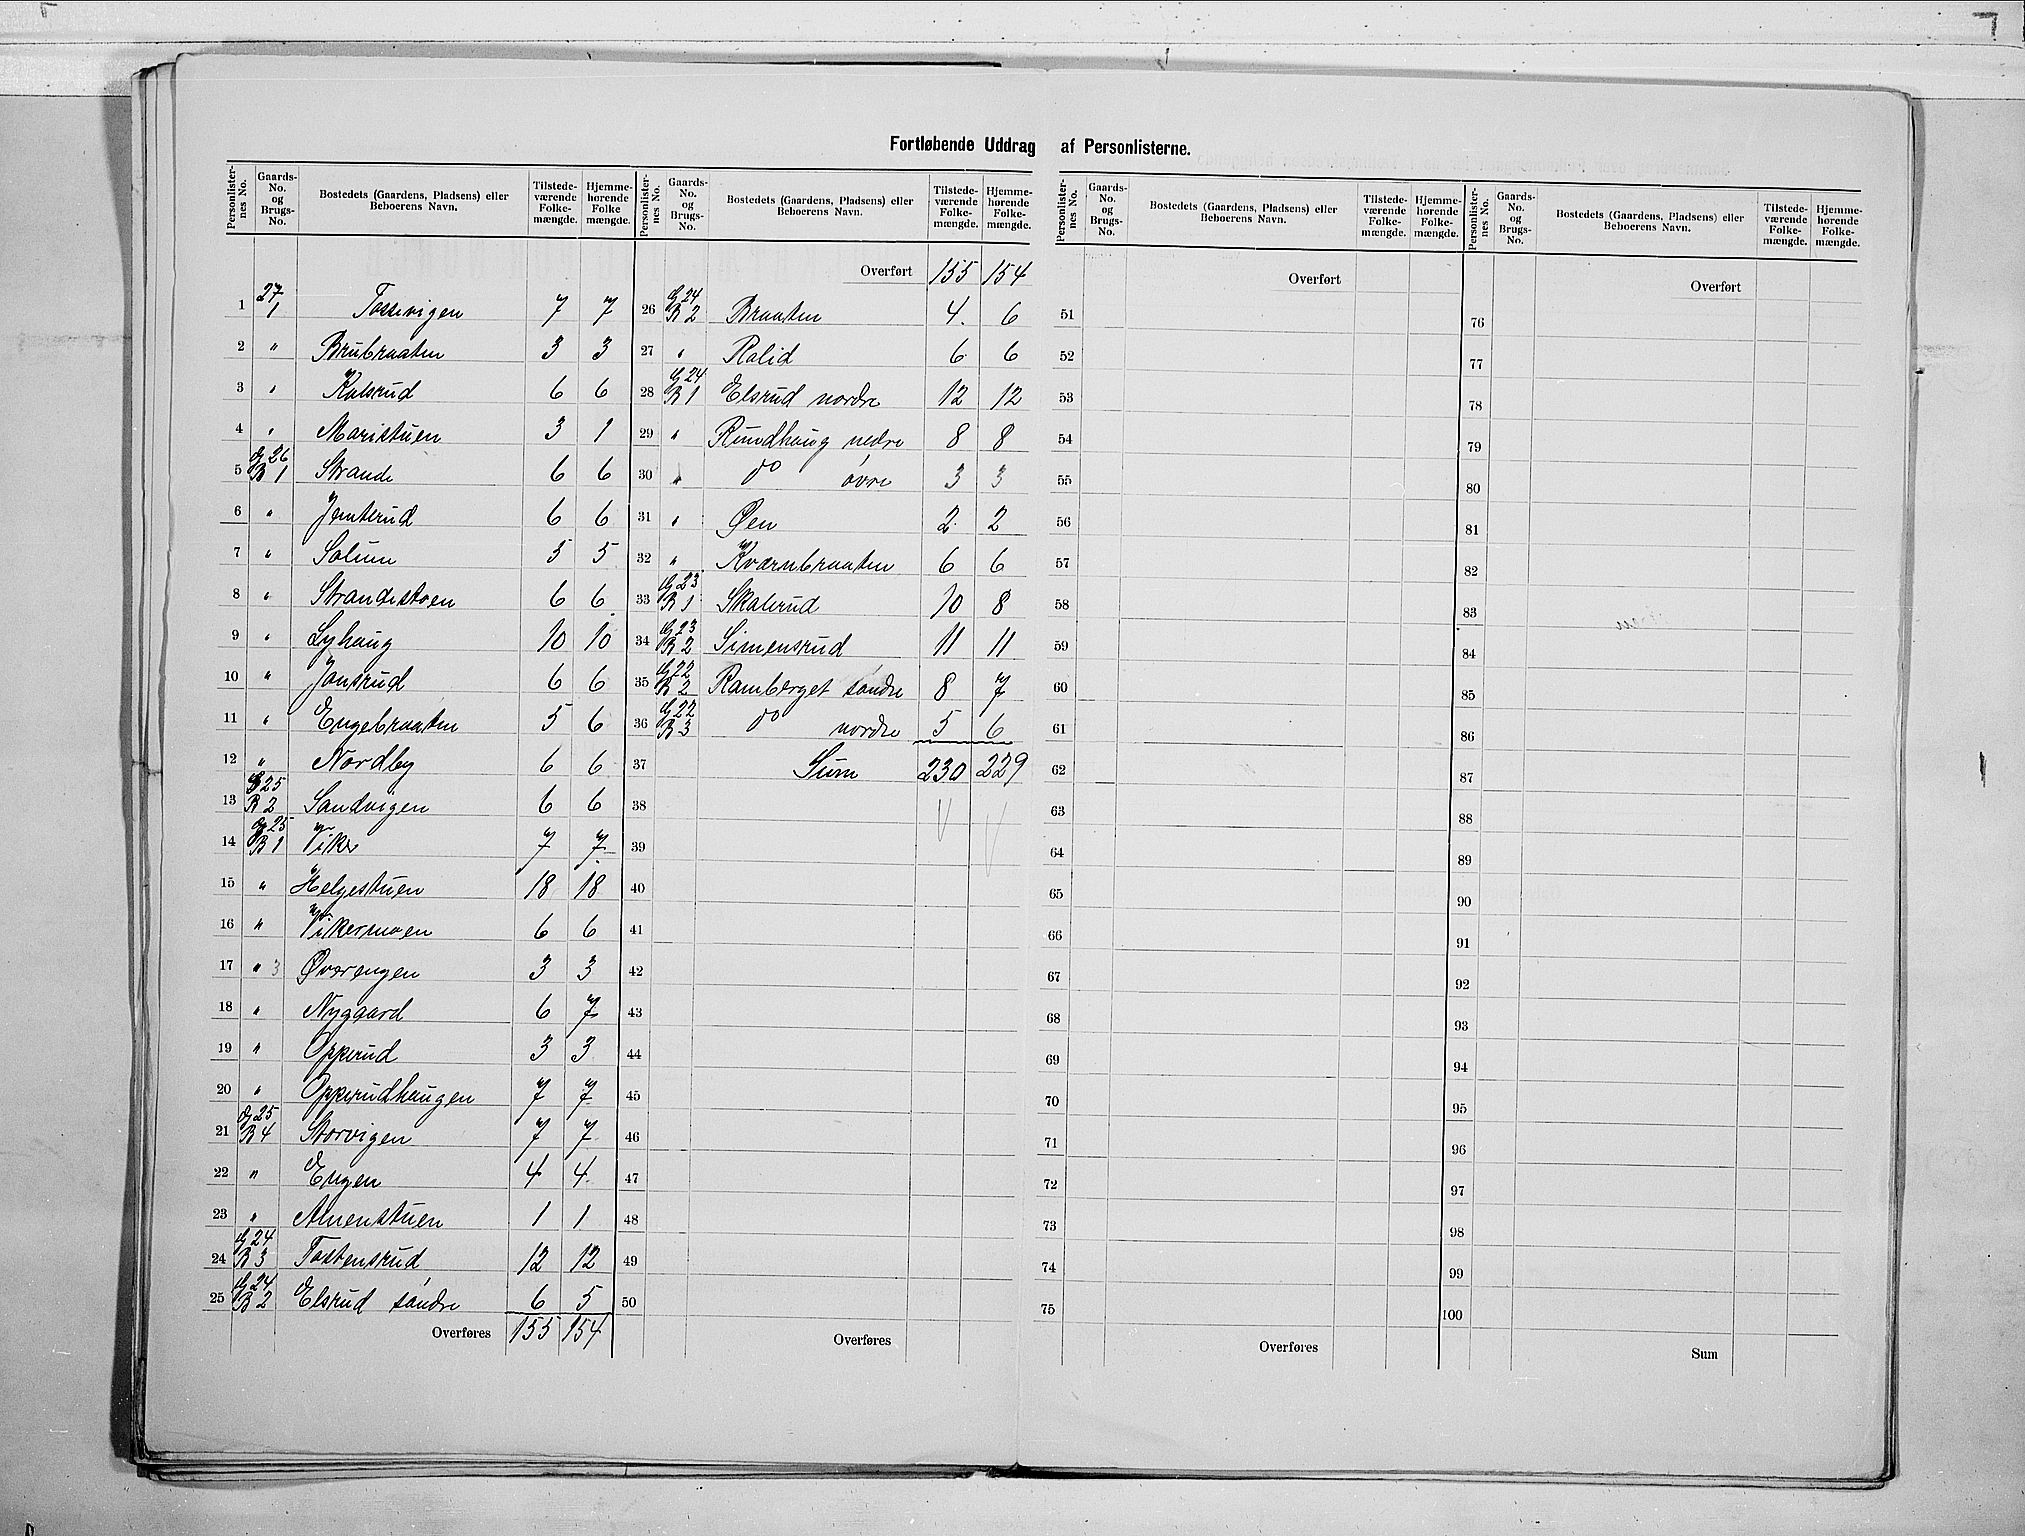 Fortløbende Uddrag af Personlisterne.
Personlister-nes No. | Gaards-No. og Brugs-No. | Bostedets (Gaardens, Pladsens) eller Beboerens Navn. | Tilstede-værende Folke-mængde. | Hjemme-hørende Folke mængde.
1 27/1 Tossevigen 7 7
2 " Brubraaten 3 3
3 " Kalsrud 6 6
4 " Maristuen 3 1
5 G 26 B 1 Strande 6 6
6 " Jemterud 6 6
7 " Solum 5 5
8 " Strandestøen 6 6
9 " Lyhaug 10 10
10 " Jonsrud 6 6
11 " Engebraaten 5 6
12 " Nordby 6 6
13 G 25 B 2 Sandvigen 6 6
14 G 25 B 1 Viker 7 7
15 " Helgestuen 18 18
16 " Vikermoen 6 6
17 " 3 Øverengen 3 3
18 " Nygaard 6 7
19 " Opperud 3 3
20 " Opperudhaugen 7 7
21 G 25 B 4 Storvigen 7 7
22 " Engen 4 4
23 " Almenstuen 1 1
24 G 24 B 3 Tostensrud 12 12
25 G 24 B 2 Elsrud søndre 6 5
Overføres 155 154
Personlister-nes No. | Gaards-No. og Brugs-No. | Bostedets (Gaardens, Pladsens) eller Beboerens Navn. | Tilstede-værende Folke-mængde. | Hjemme-hørende Folke-mængde.
Overført 155 154
26 G 24 B 2 Braaten 4. 6
27 " Kalid 6 6
28 G 24 B 1 Elsrud nordre 12 12
29 " Rundhaug nedre 8 8
30 " do øvre 3 3
31 " Øen 2 2
32 " Kværnbraaten 6 6
33 G 23 B 1 Skalerud 10 8
34 G 23 B 2 Simensrud 11 11
35 G 22 B 2 Ramberget søndre 8 7
36 G 22 B 3 do nordre 5 6
37 Sum 230 229
38
39
40
41
42
43
44
45
46
47
48
49
50
Overføres
Personlister-nes No. | Gaards-No. og Brugs-No. | Bostedets (Gaardens, Pladsens) eller Beboerens Navn. | Tilstede-værende Folke-mængde. | Hjemme-hørende Folke-mængde.
Overført
51
52
53
54
55
56
57
58
59
60
61
62
63
64
65
66
67
68
69
70
71
72
73
74
75
Overføres
Personlister-nes No. | Gaards-No. og Brugs-No. | Bostedets (Gaardens, Pladsens) eller Beboerens Navn. | Tilstede-værende Folke-mængde. | Hjemme-hørende Folke-mængde.
Overført
76
77
78
79
80
81
82
83
84
85
86
87
88
89
90
91
92
93
94
95
96
97
98
99
100
Sum